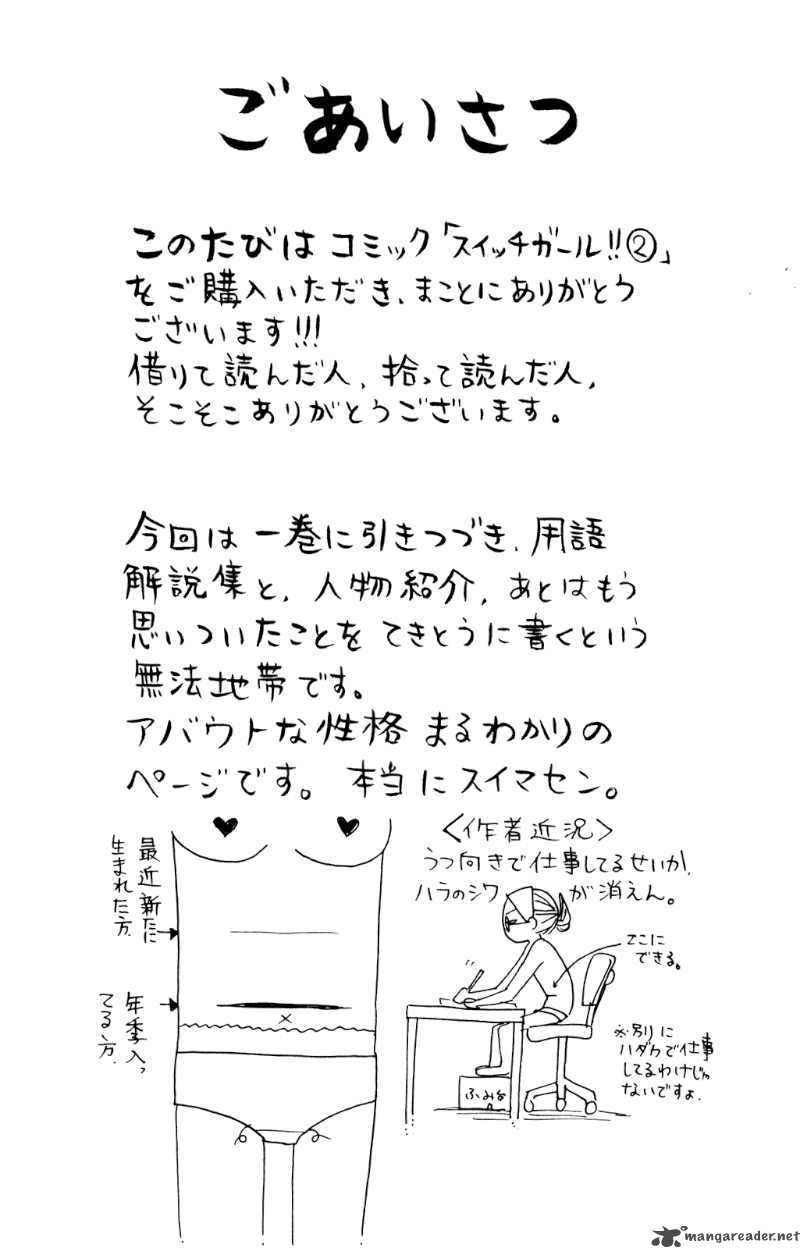 ごあいさつ
このたびは コミック「スイッチガール!!②」
をご購入いただき、まことにありがとう
ございます!!!
借りて読んだ人、拾って読んだ人、
そこそこありがとうございます。
今回は 一巻に引きつづき、用語
解説集と、人物紹介、あとはもう
思いついたことを てきとうに書くという
無法地帯です。
アバウトな性格 まるわかりの
ページです。 本当にスイマセン。
最近新たに
生まれた方.
年季入っ
てる方.
<作者近況>
うつ向きで仕事してるせいか、
ハラのシワが消えん。
ここに
できる。
※別に
ハダカで仕事
してるわけじゃ
ないですよ.
ふみ台
mangareader.net